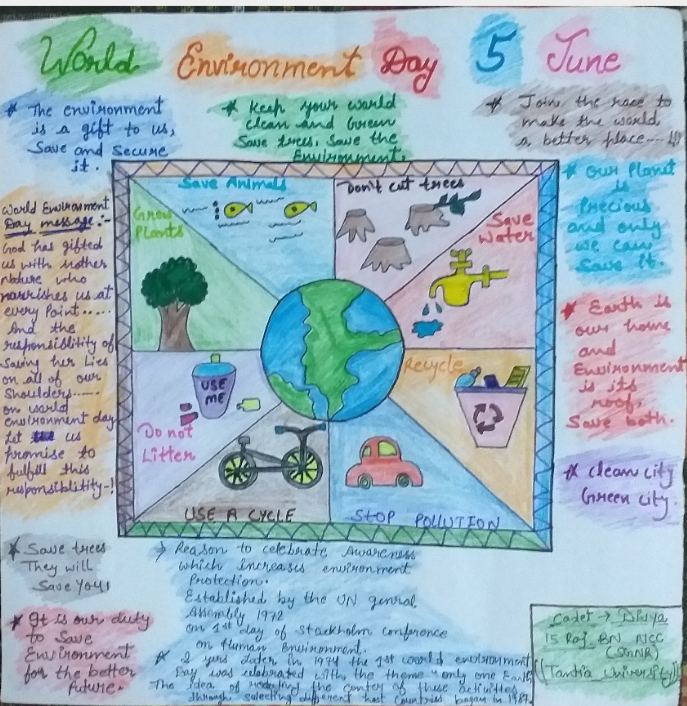 World Environment Day 5 June
* The environment
is a gift to us,
Save and Secure
it.
* Keep your world
clean and Green
Save trees, Save the
Environment.
* Join the race to
make the world
a better place....!!!
World Environment
Day message:-
God has gifted
us with Mother
Nature who
nourishes us at
every Point.....
And the
responsiblity of
Saving her Lies
on all of our
Shoulders.....
on world
environment day
Let us
promise to
fulfill this
responsiblitity-!
Save Animals
Don't cut trees
Grow
Plants
Save
Water
Recycle
USE
ME
Do not
Litter
USE A CYCLE
STOP POLLUTION
* Our Planet
is
Precious
and only
we can
Save it.
* Earth is
our home
and
Environment
is its
roof,
Save both.
* clean city
Green city.
* Save trees
They will
Save You!
* It is our duty
to Save
Environment
for the better
future.
→ Reason to celebrate Awareness
which increases environment
Protection.
Established by the UN genral
Assembly 1972
on 1st day of Stockholm conference
on Human Environment.
* 2 yrs later in 1974 the 1st world environment
Day was celebrated with the theme "only one Earth
The idea of the center of these activities
through selecting different host countries began in 1987.
Cadet → Divya
15 Raj BN NCC
(SGNR)
(Tantia University)